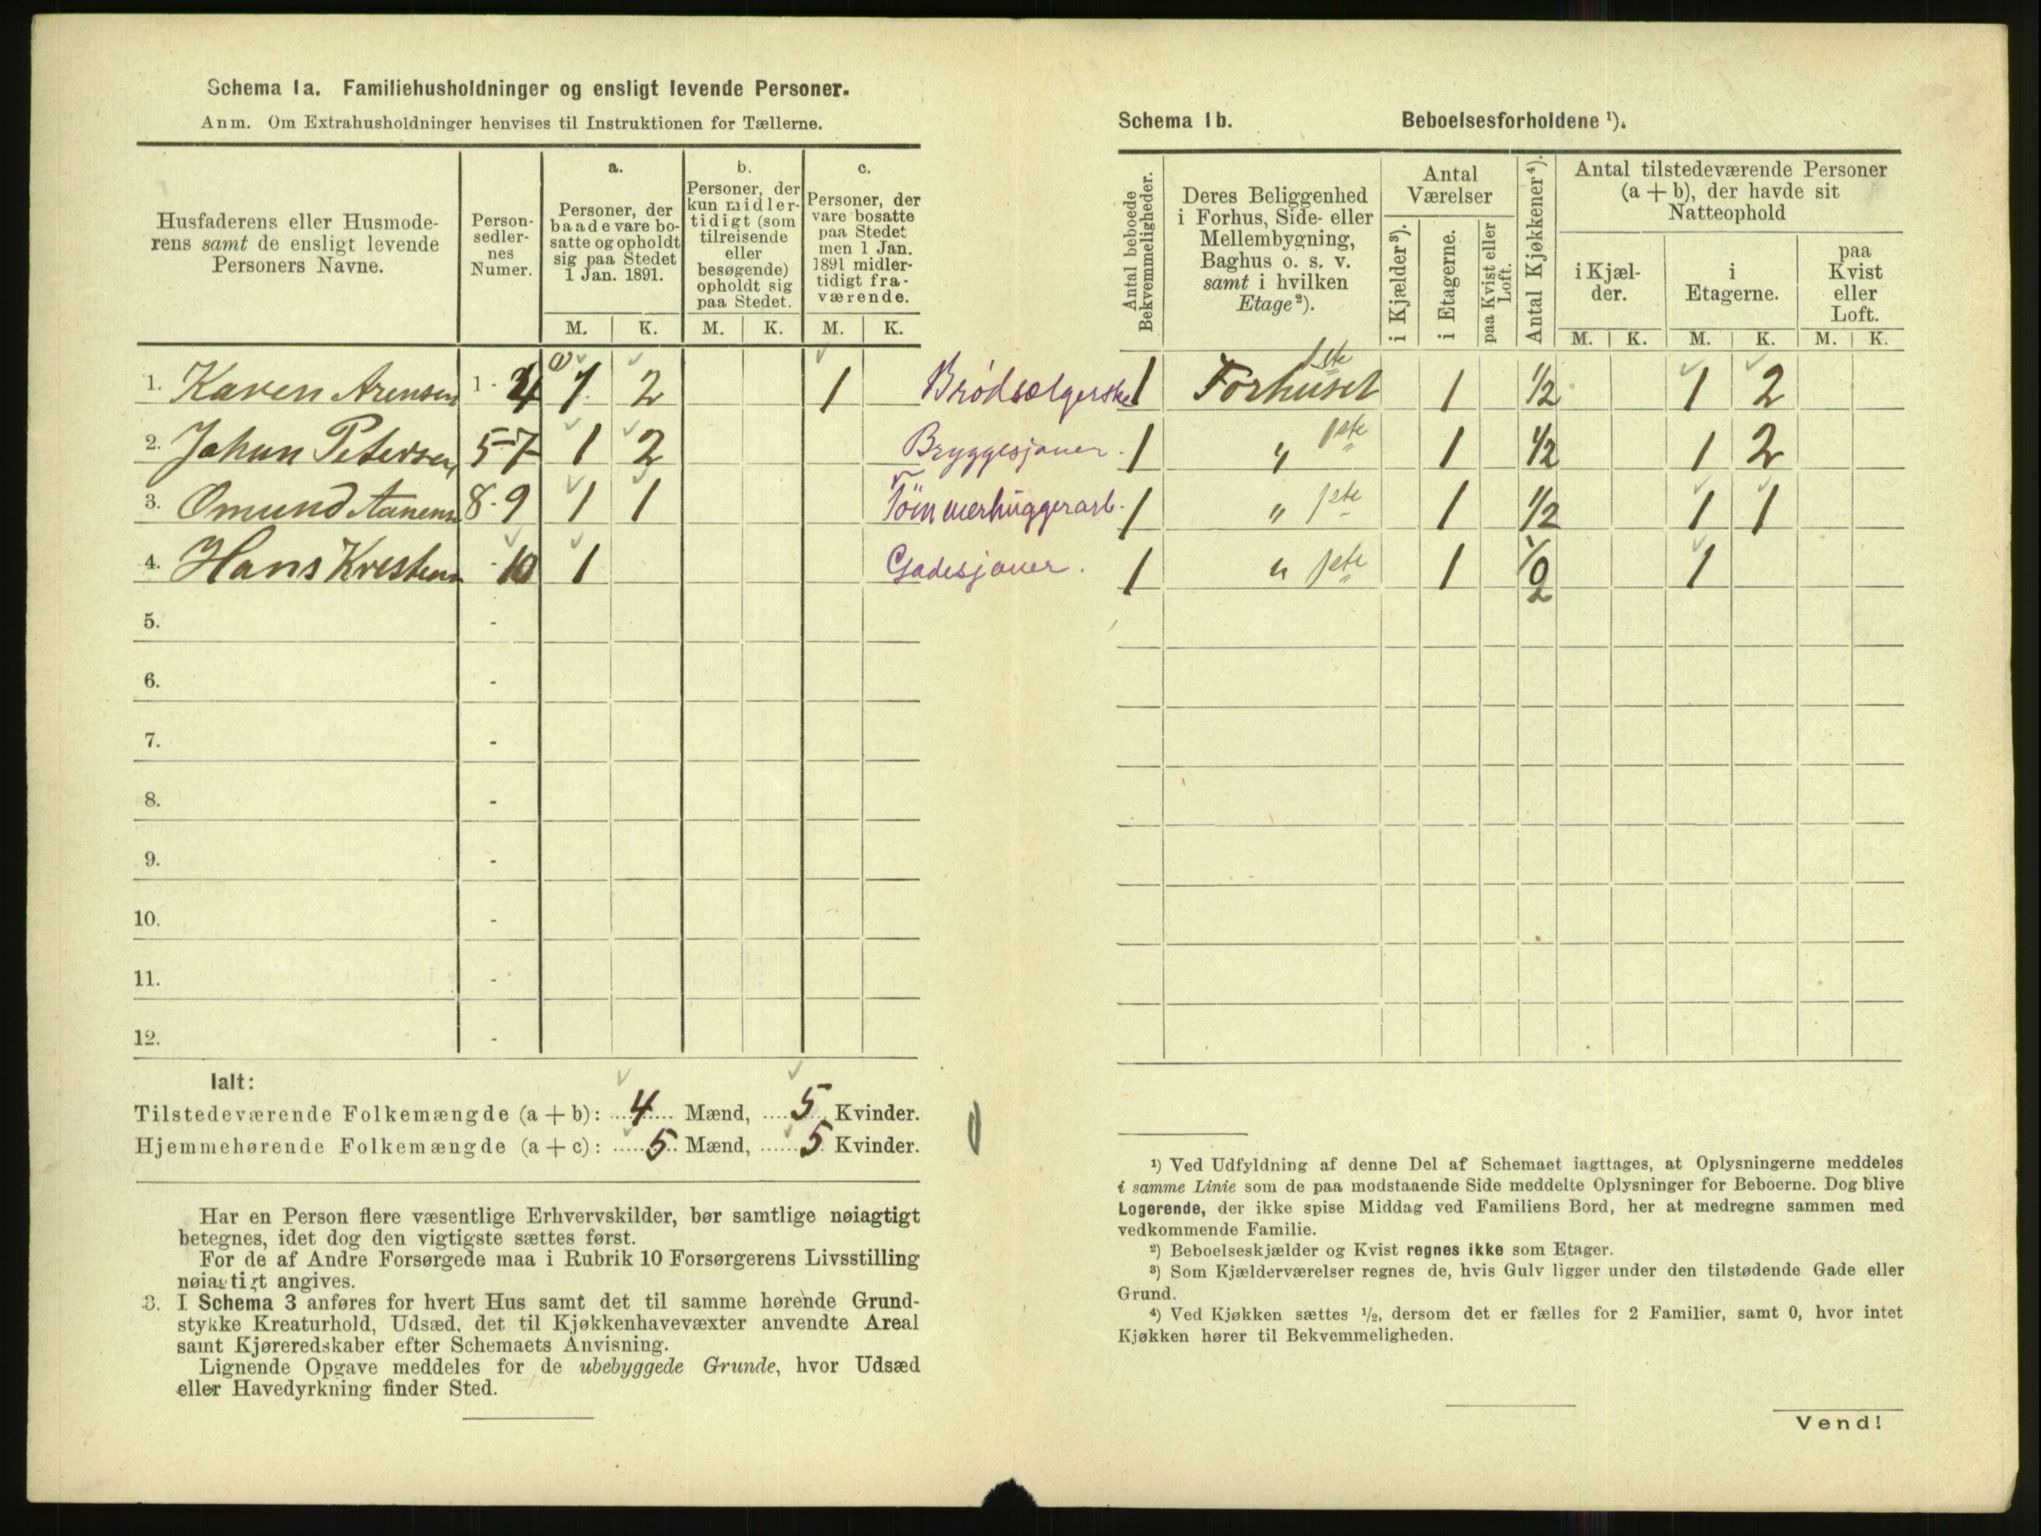 Schema 1a. Familiehusholdninger og ensligt levende Personer.
Anm. Om Extrahusholdninger henvises til Instruktionen for Tællerne.
Husfaderens eller Husmode-
rens samt de ensligt levende
Personers Navne.
Person-
sedler-
nes
Numer.
a.
Personer, der
baade vare bo-
satte og opholdt
sig paa Stedet
1 Jan. 1891.
b.
Personer, der
kun midler-
tidigt (som
tilreisende
eller
besøgende)
opholdt sig
paa Stedet.
c.
Personer, der
vare bosatte
paa Stedet
men 1 Jan.
1891 midler-
tidigt fra-
værende.
M. K. M. K. M. K.
1. Karen Arensen 1 - 4 (1) 1 2 1 Brødsælgerske
2. Johan Petersen 5-7 1 2 Bryggesjouer.
3. Omund Aanens 8-9 1 1 Tømmerhuggerarb.
4. Hans Kristens - 10 1 Gadesjouer.
5. -
6. -
7. -
8. -
9. -
10. -
11. -
12. -
Ialt:
Tilstedeværende Folkemængde (a + b): 4 Mænd, 5 Kvinder.
Hjemmehørende Folkemængde (a + c): 5 Mænd, 5 Kvinder.
Har en Person flere væsentlige Erhvervskilder, bør samtlige nøiagtigt
betegnes, idet dog den vigtigste sættes først.
For de af Andre Forsørgede maa i Rubrik 10 Forsørgerens Livsstilling
nøiagtigt angives.
3. I Schema 3 anføres for hvert Hus samt det til samme hørende Grund-
stykke Kreaturhold, Udsæd, det til Kjøkkenhavevæxter anvendte Areal
samt Kjøreredskaber efter Schemaets Anvisning.
Lignende Opgave meddeles for de ubebyggede Grunde, hvor Udsæd
eller Havedyrkning finder Sted.
Schema 1b. Beboelsesforholdene ¹).
Antal beboede
Bekvemmeligheder.
Deres Beliggenhed
i Forhus, Side- eller
Mellembygning,
Baghus o. s. v.
samt i hvilken
Etage²).
Antal
Værelser
i Kjælder³).
i Etagerne.
paa Kvist eller
Loft.
Antal Kjøkkener⁴).
Antal tilstedeværende Personer
(a + b), der havde sit
Natteophold
i Kjæl-
der.
i
Etagerne.
paa
Kvist
eller
Loft.
M. K. M. K. M. K.
1 Forhuset 1ste 1 1/2 1 2
1 " 1ste 1 1/2 1 2
1 " 1ste 1 1/2 1 1
1 " 1ste 1 1/2 1
¹) Ved Udfyldning af denne Del af Schemaet iagttages, at Oplysningerne meddeles
i samme Linie som de paa modstaaende Side meddelte Oplysninger for Beboerne. Dog blive
Logerende, der ikke spise Middag ved Familiens Bord, her at medregne sammen med
vedkommende Familie.
²) Beboelseskjælder og Kvist regnes ikke som Etager.
³) Som Kjælderværelser regnes de, hvis Gulv ligger under den tilstødende Gade eller
Grund.
⁴) Ved Kjøkken sættes ½, dersom det er fælles for 2 Familier, samt 0, hvor intet
Kjøkken hører til Bekvemmeligheden.
Vend!